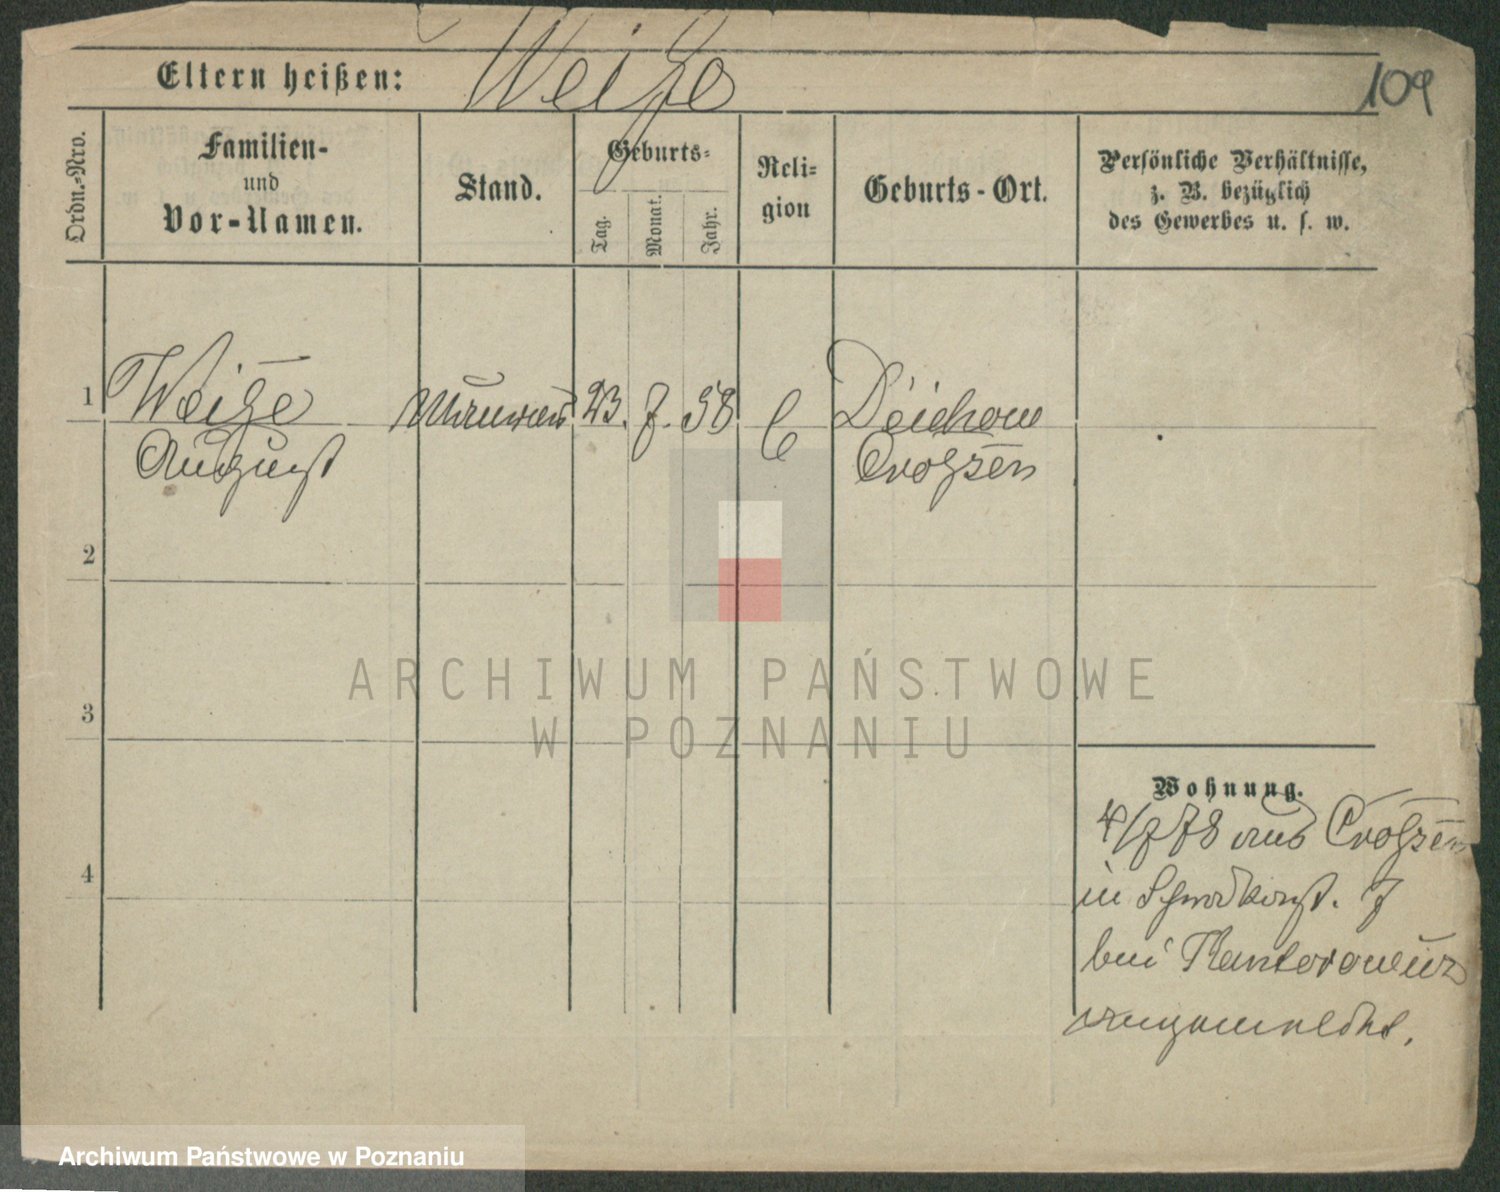 Eltern heißen: Weiße
109
Ordn.-Nro.
Familien-
und
Vor-Namen.
Stand.
Geburts-
Tag.
Monat.
Jahr.
Reli-
gion
Geburts-Ort.
Persönliche Verhältnisse,
z. B. bezüglich
des Gewerbes u. s. w.
1
Weiße
August
23. 7. 58
C
2
3
4
Wohnung.
4/7 78 aus
in 7
bei Kantorowicz
angemeldet.
ARCHIWUM PAŃSTWOWE
W POZNANIU
Archiwum Państwowe w Poznaniu